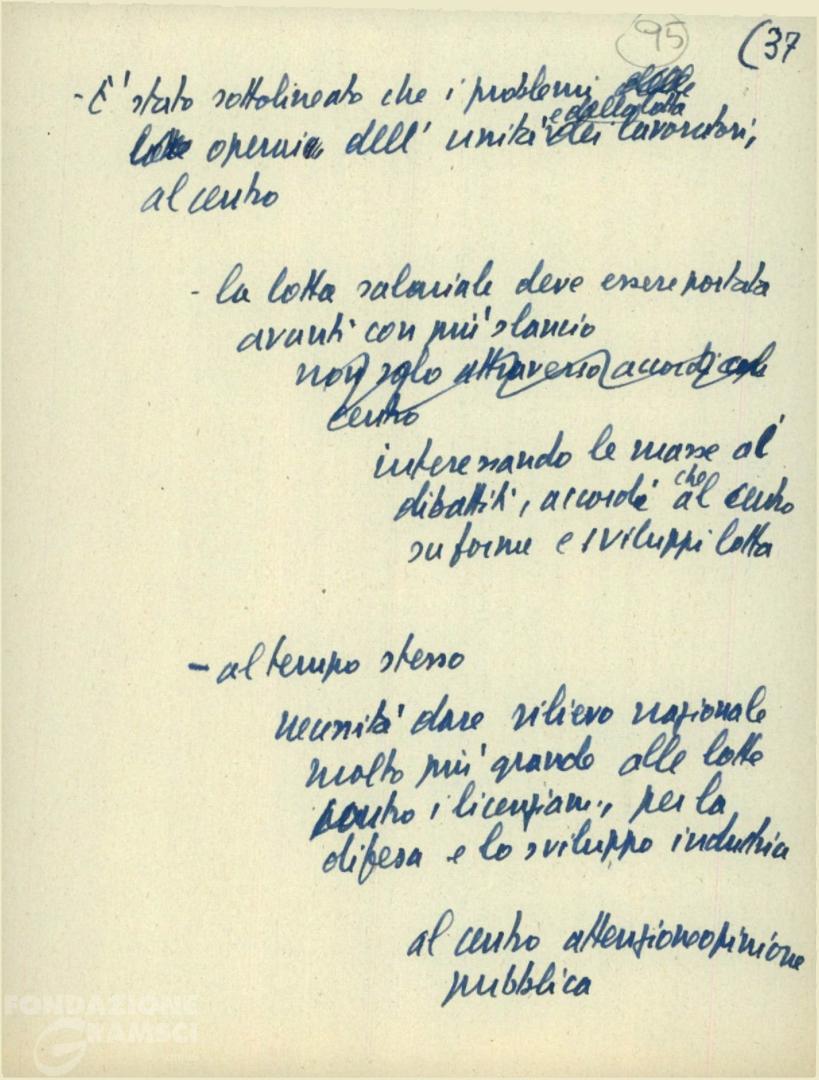 95 (37
- E' stato sottolineato che i problemi delle
e della lotta
lotte operaie dell' unità dei lavoratori,
al centro
- la lotta salariale deve essere portata
avanti con più slancio
non solo attraverso accordi
centro
interessando le masse al
dibattiti, accordi al centro
che
su forme e sviluppi lotta
- al tempo stesso
necessità dare rilievo nazionale
molto più grande alle lotte
contro i licenziam., per la
difesa e lo sviluppo industria
al centro attenzione opinione
pubblica
FONDAZIONE
GRAMSCI